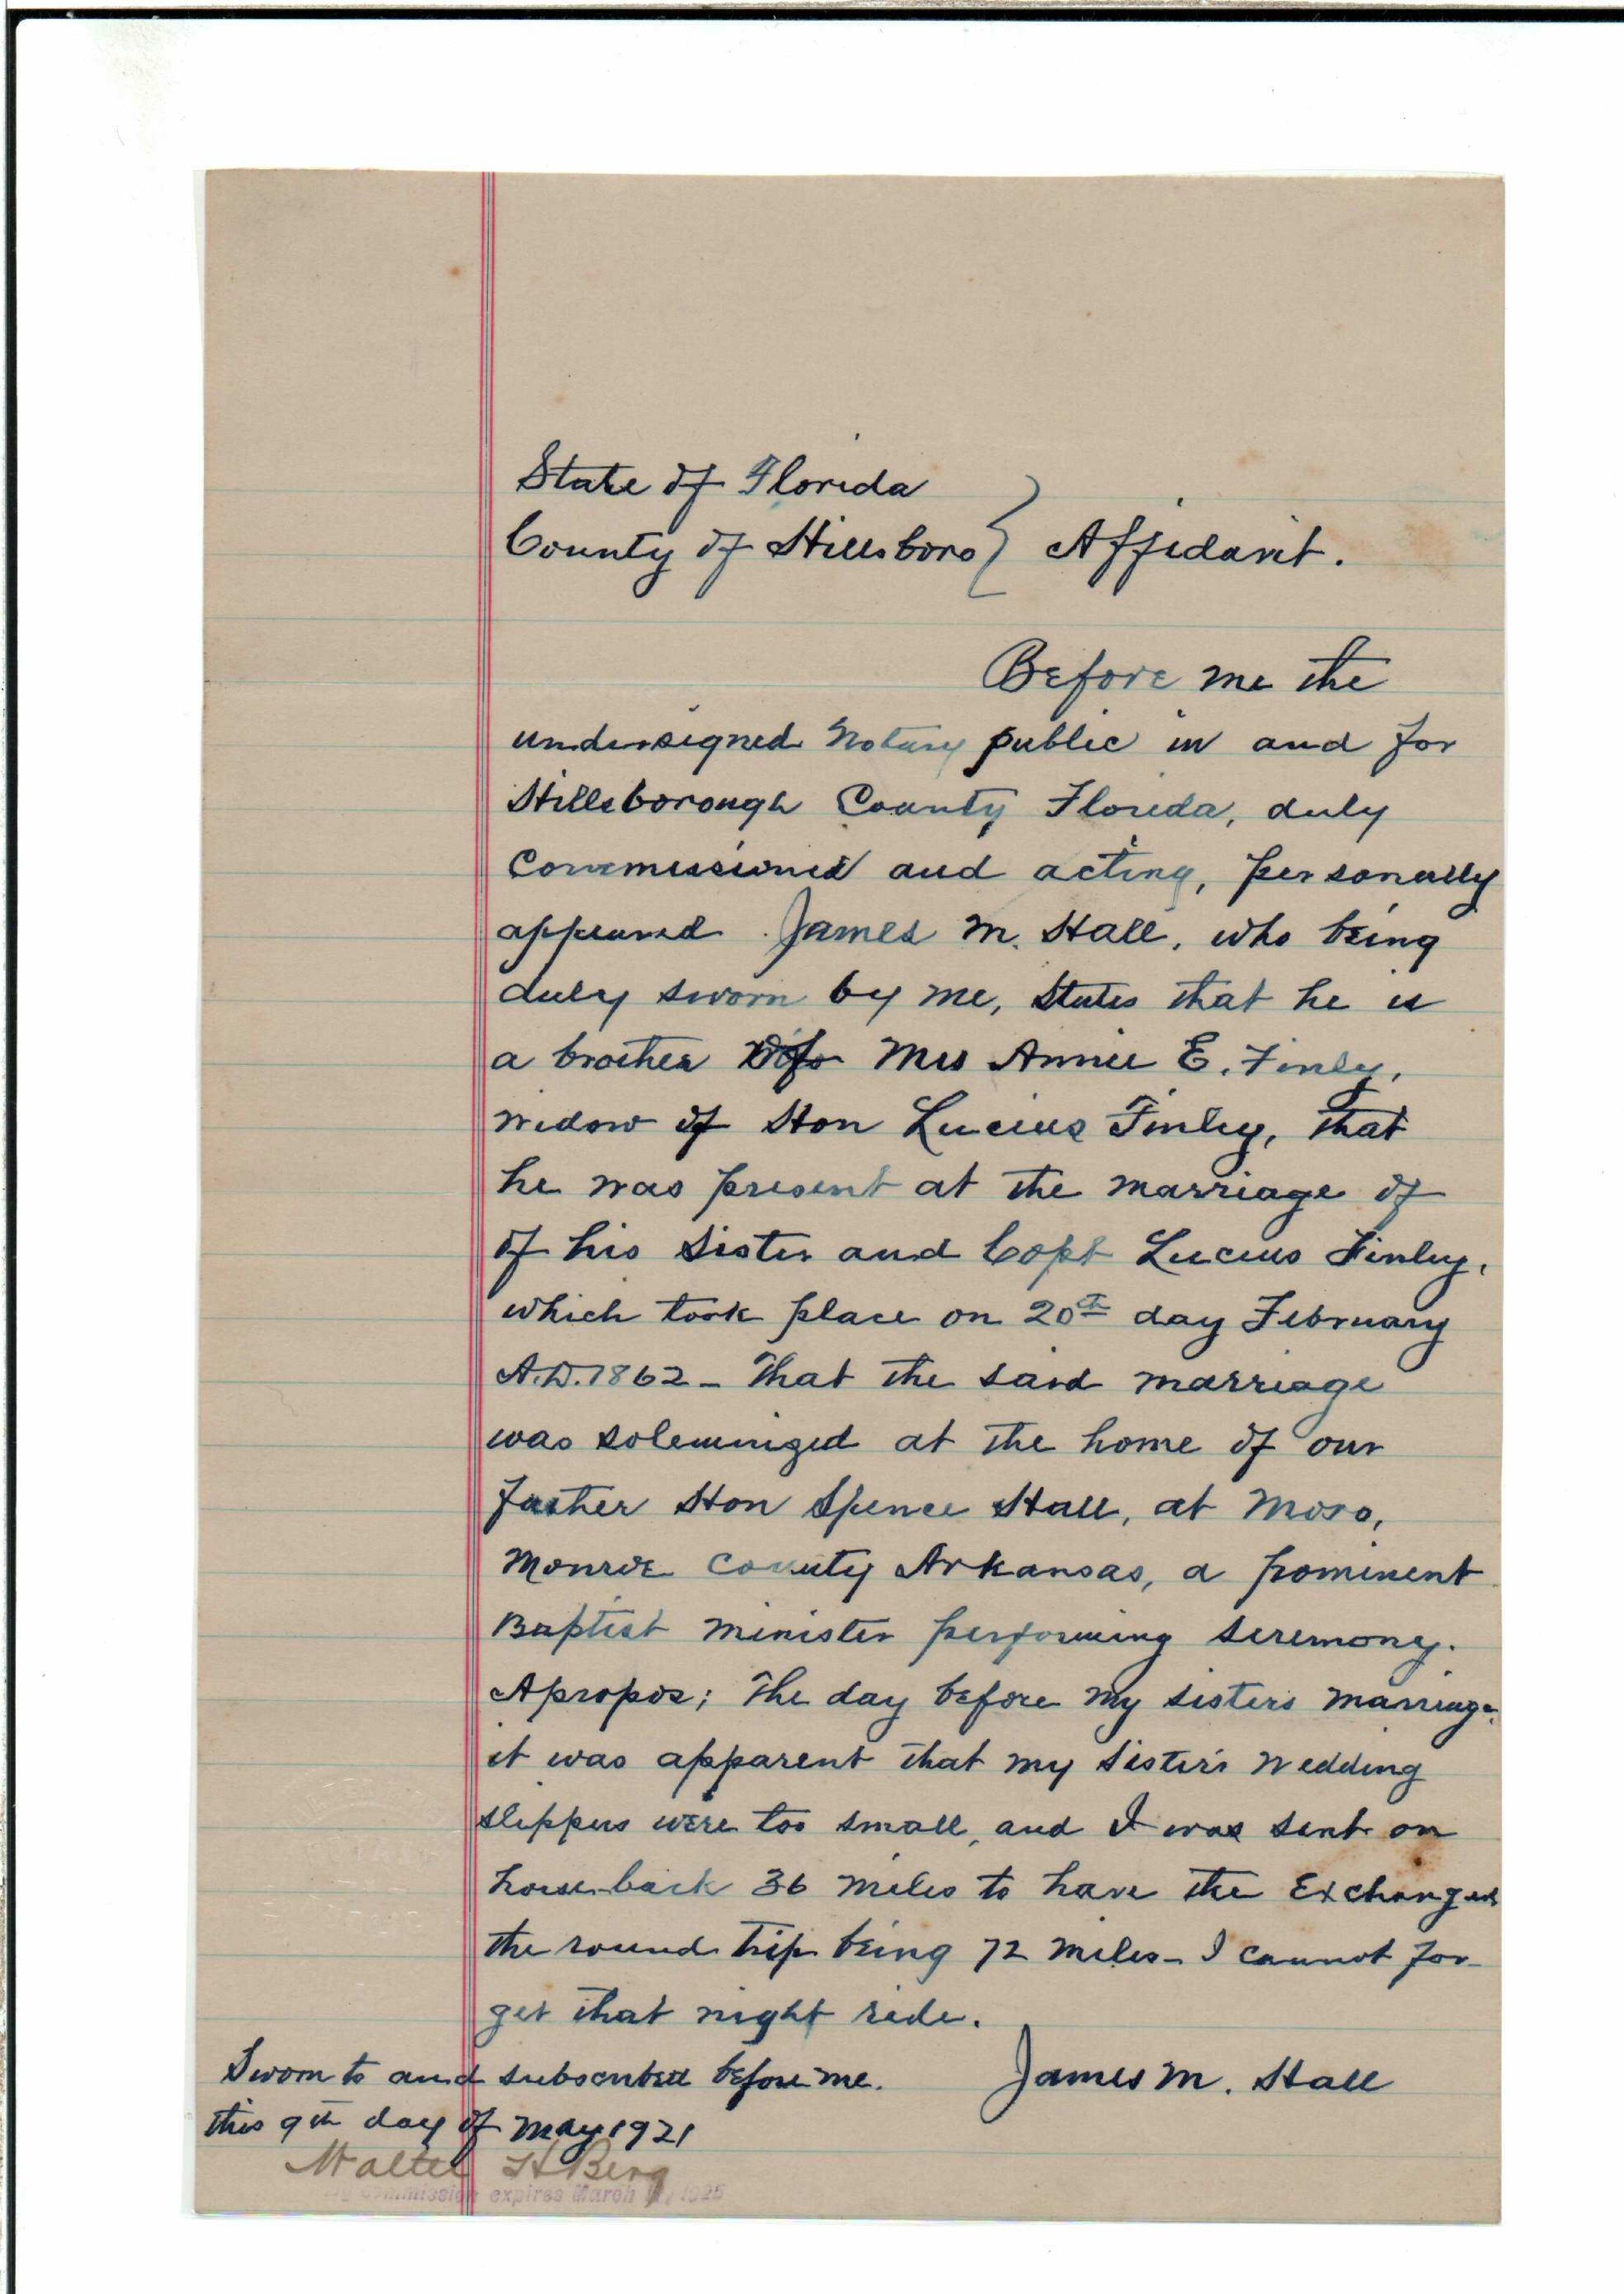 State of Florida
County of Hillsboro } Affidavit.
Before me the
undersigned Notary public in and for
Hillsborough County Florida, duly
Commissioned and acting, personally
appeared James M. Hall, who being
duly sworn by me, states that he is
a brother of Mrs Annie E. Finley,
widow of Hon Lucius Finley, that
he was present at the marriage of
of his sister and Capt Lucius Finley,
which took place on 20th day February
A.D. 1862 - That the said marriage
was solemnized at the home of our
father Hon Spence Hall, at Moro,
Monroe County Arkansas, a prominent
Baptist minister performing seremony.
Apropos; The day before my sister's marriage,
it was apparent that my sister's wedding
slippers were too small, and I was sent on
horseback 36 miles to have the Exchanged
the round trip being 72 miles - I cannot for-
get that night ride.
James M. Hall
Sworn to and subscribed before me.
this 9th day of May 1921
Walter H Berg
My commission expires March 1925